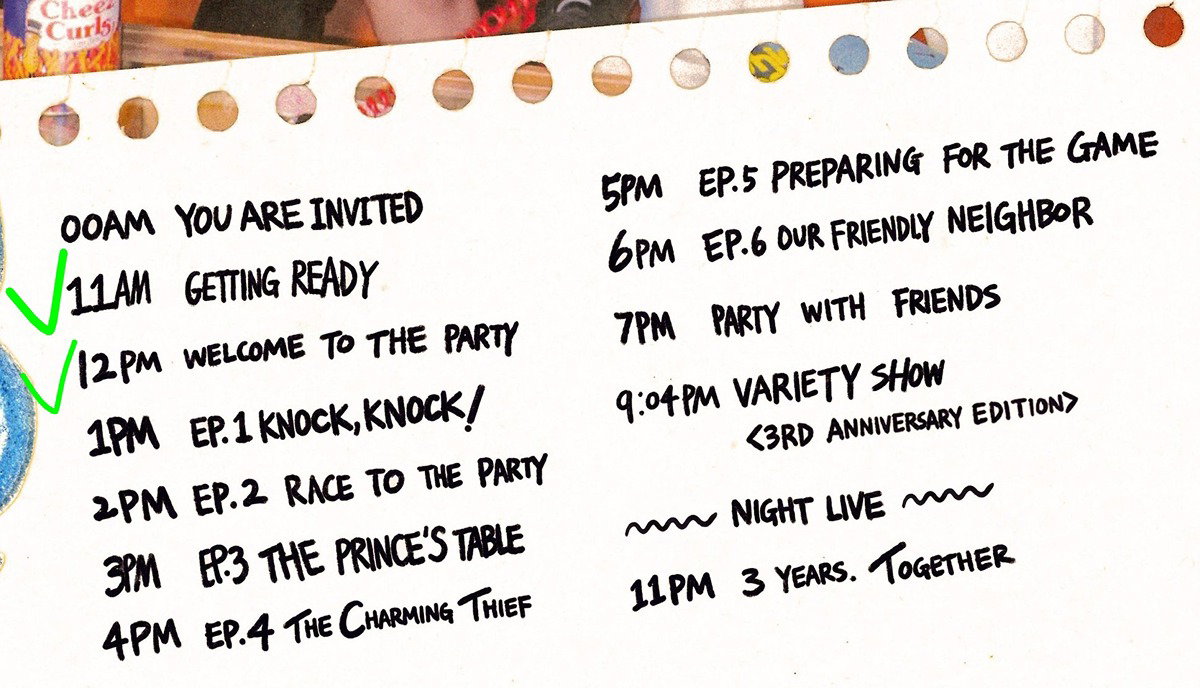 Cheez
Curls
00AM YOU ARE INVITED
11AM GETTING READY
12PM WELCOME TO THE PARTY
1PM EP.1 KNOCK, KNOCK!
2PM EP.2 RACE TO THE PARTY
3PM EP.3 THE PRINCE'S TABLE
4PM EP.4 THE CHARMING THIEF
5PM EP.5 PREPARING FOR THE GAME
6PM EP.6 OUR FRIENDLY NEIGHBOR
7PM PARTY WITH FRIENDS
9:04PM VARIETY SHOW
<3RD ANNIVERSARY EDITION>
NIGHT LIVE
11PM 3 YEARS. TOGETHER